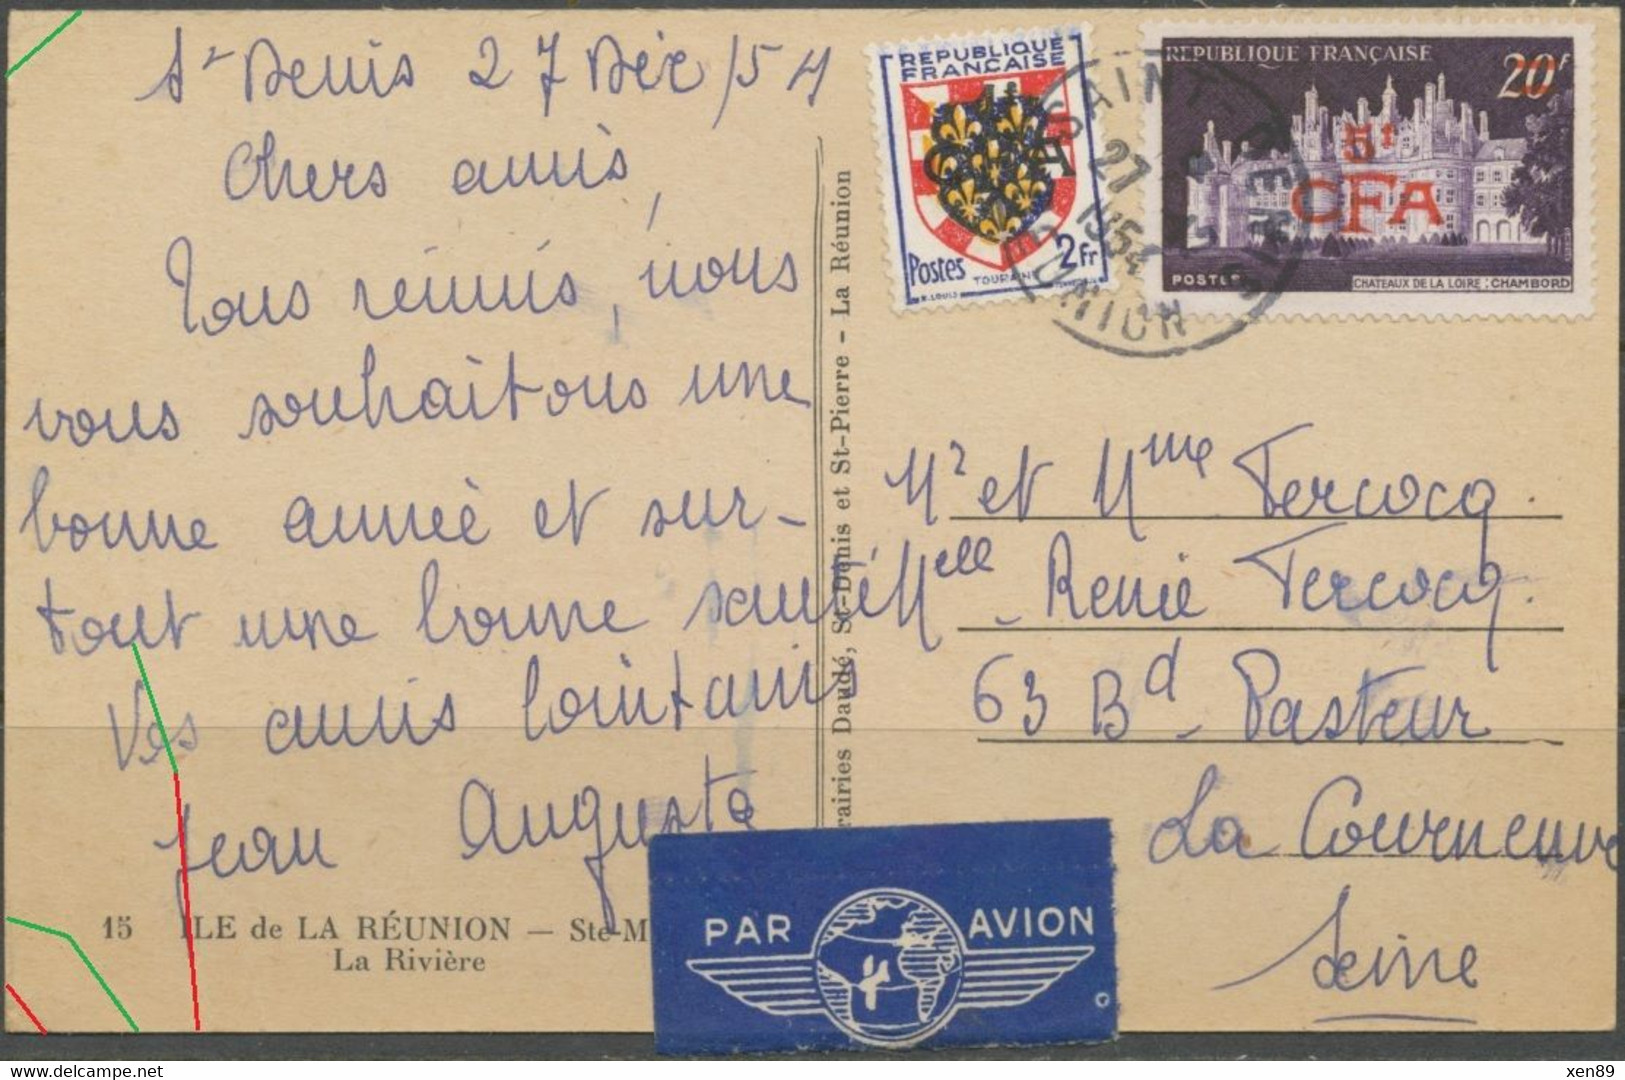 St Denis 27 Déc/54
Chers amis,
Tous réunis, nous
vous souhaitons une
bonne année et sur-
tout une bonne santé
Vos amis lointains
Jean Auguste
15 ILE de LA RÉUNION — Ste-M
La Rivière
rairies Daudé, St-Denis et St-Pierre - La Réunion
REPUBLIQUE
FRANCAISE
1f
CFA
Postes 2Fr
TOURAINE
R. LOUIS
REPUBLIQUE FRANÇAISE 20F
5f
CFA
POSTES
CHATEAUX DE LA LOIRE : CHAMBORD
SAINT-DENIS
27
1954
REUNION
Mr et Mme Tercocq.
Melle Renée Tercocq.
63 Bd Pasteur
La Courneuve
Seine
PAR AVION
Delcampe.net
xen89